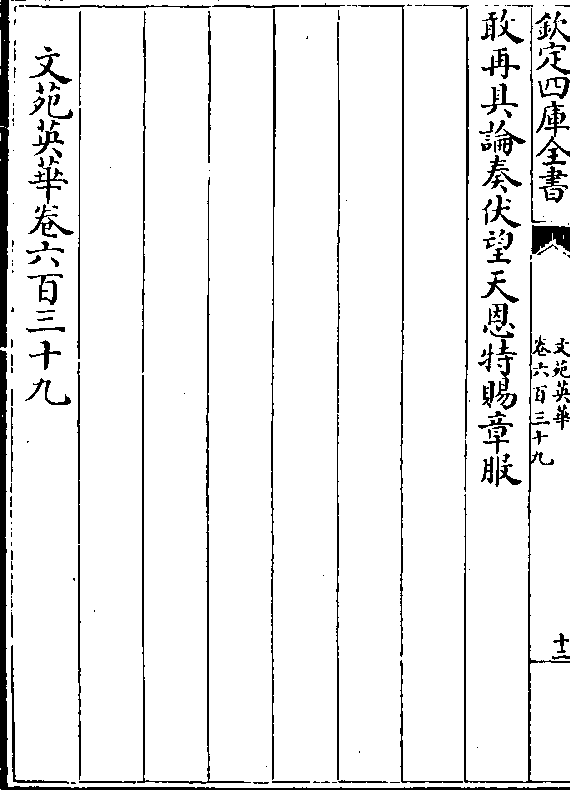 欽定四庫全書
文苑英華
卷六百三十九
十二
敢再具論奏伏望天恩特賜章服
文苑英華卷六百三十九